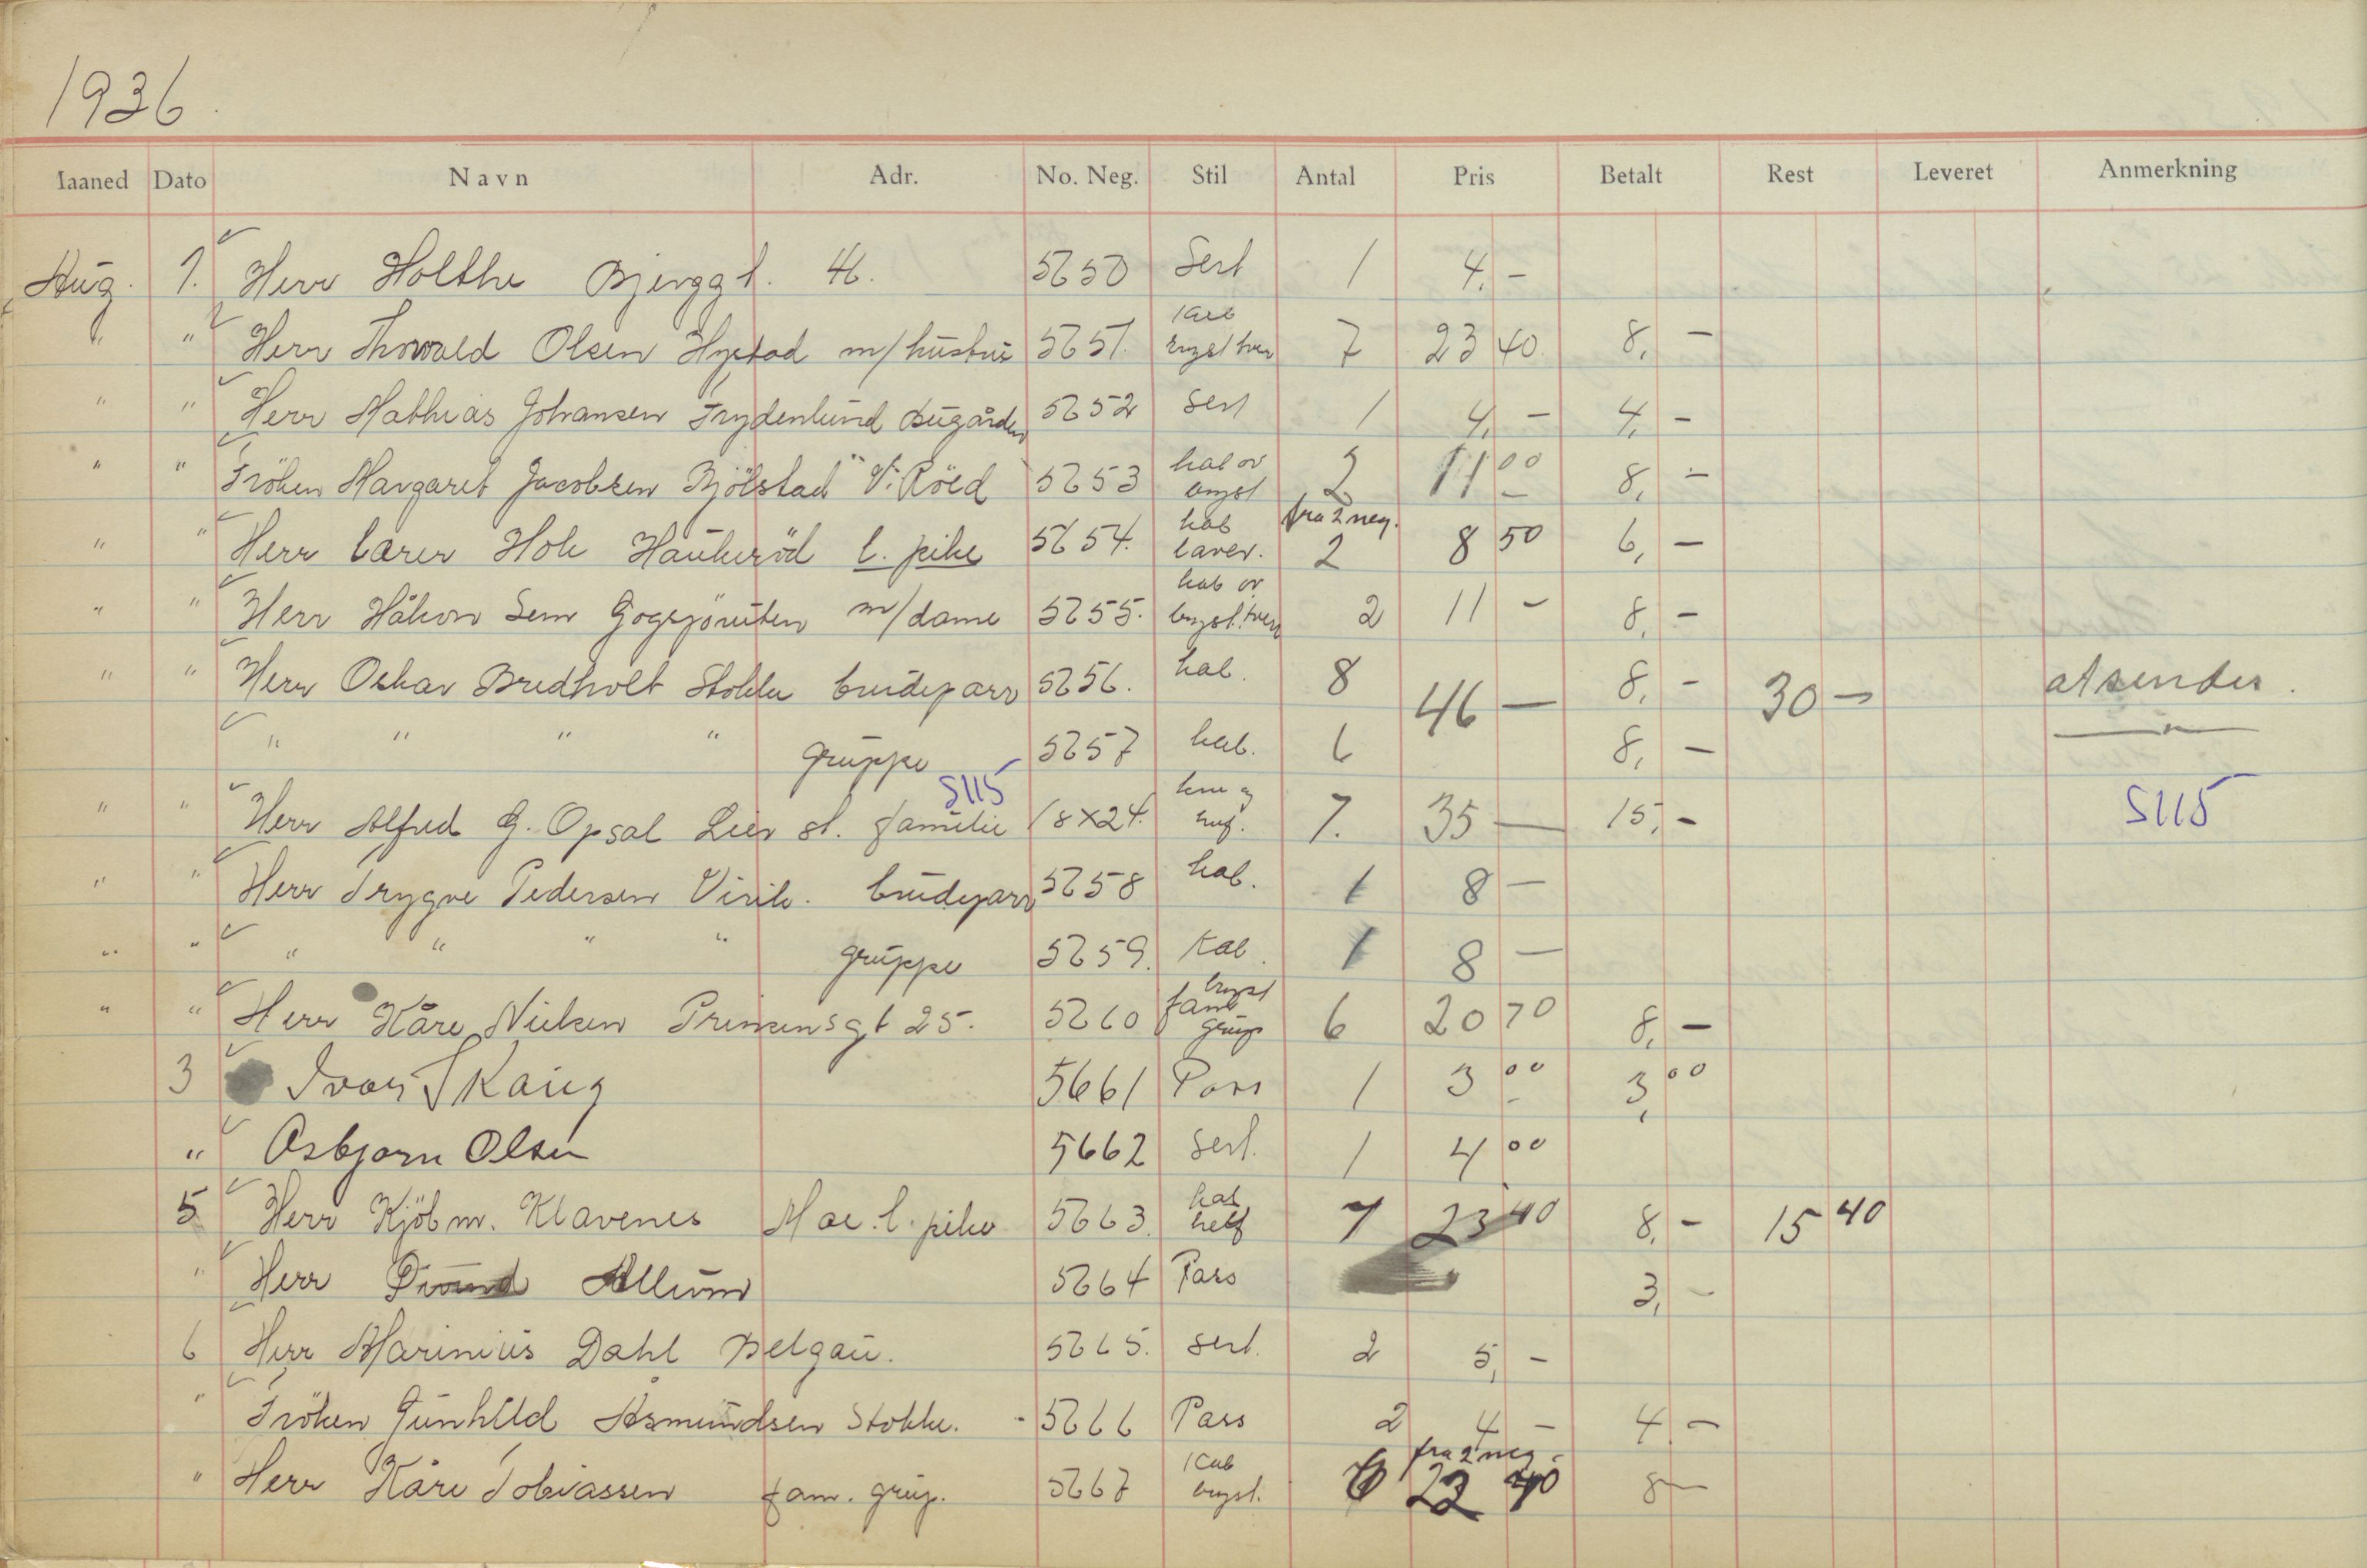 1936
Maaned Dato Navn Adr. No. Neg. Stil Antal Pris Betalt Rest Leveret Anmerkning
Aug. 1. Herr Holthe Bjerggt. 46. 5650 Sert 1 4,-
" " Herr Thorvald Olsen Hystad m/hustru 5651. Kab bryst tver 7 23 40 8,-
" " Herr Mathias Johansen Frydenlund Bugården 5652 Sert 1 4,- 4,-
" " Fröken Margaret Jacobsen Bjölstad V. Röed 5653 kab ov bryst 2 11 00 8,-
" " Herr lærer Hole Haukeröd l. pike 5654. kab laver. fra 2 neg. 2 8 50 6,-
" " Herr Håkon Sem Gogsjöruten m/dame 5655. kab ov bryst. tver 2 11 - 8,-
" " Herr Oskar Bredholt Stokke brudepar 5656. kab. 8 46 - 8,- 30 - afsendes.
" " " " gruppe 5657 kab. 6 8,- "
" " Herr Alfred G. Opsal Lier st. familie S115 18x24. kne og 7. 35 - 15,- S115
" " Herr Trygve Pedersen Virik. brudepar 5658 kab. 1 8 -
" " " " " " gruppe 5659. Kab. 1 8 -
" " Herr Kåre Nielsen Prinsensgt 25. 5660 bryst fam grup 6 20 70 8,-
3 Ivar Skaug 5661 Pass 1 3 00 3,00
" Asbjørn Olsen 5662 Sert. 1 4 00
5 Herr Kjöbm. Klavenes Moe. l. pike 5663. kab helf 7 23 40 8,- 15 40
" Herr Allum 5664 Pass 3,-
6 Herr Marinius Dahl Belgau. 5665. sert. 2 5,-
" Fröken Gunhild Asmundsen Stokke. 5666 Pass 2 4 - 4 -
" Herr Kåre Tobiassen fam. grup. 5667 Kab bryst. 6 fra 2 neg. 22 40 8 -